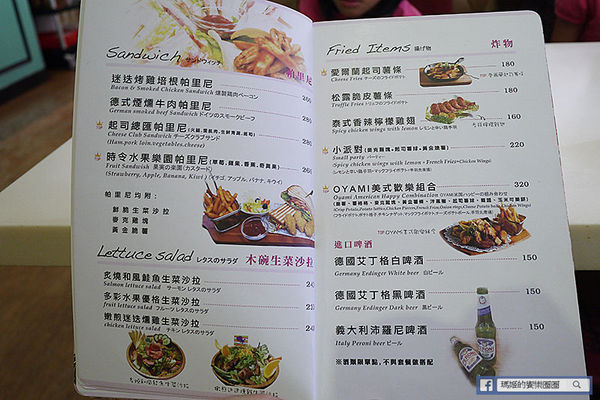 Sandwich サンドウィッチ
帕里尼
迷迭烤雞培根帕里尼
Bacon & Smoked Chicken Sandwich 燻製鶏肉ベーコン
德式煙燻牛肉帕里尼
German smoked beef Sandwich ドイツのスモークビーフ
起司總匯帕里尼
Cheese Club Sandwich チーズクラブサンド
(Ham.pork loin.vegetables.cheese)
時令水果樂園帕里尼(草莓,蘋果,香蕉,奇異果)
Fruit Sandwish 果実の楽園(カスタード)
(Strawberry, Apple, Banana, Kiwi) (イチゴ, アップル, バナナ, キウイ)
帕里尼均附:
鮮脆生菜沙拉
麥克雞塊
黃金脆薯
Lettuce Salad レタスのサラダ 木碗生菜沙拉
炙燒和風鮭魚生菜沙拉
Salmon lettuce salad サーモン レタスのサラダ
多彩水果優格生菜沙拉
fruit lettuce salad フルーツ レタスのサラダ
嫩煎迷迭燻雞生菜沙拉
chicken lettuce salad チキン レタスのサラダ
Fried Items 揚げ物 炸物
愛爾蘭起司薯條 180
Cheese Fries チーズのフライポテト
松露脆皮薯條 160
Truffle Fries トリュフのフライポテト
泰式香辣檸檬雞翅 180
Spicy chicken wings with lemon レモンと辛い鶏手羽
小派對(麥克雞塊,起司薯條,黃金脆薯) 220
Small party パーティー
(Spicy chicken wings with lemon、French Fries、Chicken Wings)
OYAMI美式歡樂組合 320
Oyami American Happy Combination OYAMI米国ハッピーの組み合わせ
進口啤酒
德國艾丁格白啤酒 150
Germany Erdinger White beer 白ビール
德國艾丁格黑啤酒 150
Germany Erdinger Dark beer 黒ビール
義大利沛羅尼啤酒 150
Italy Peroni beer ビール
※酒類屬單點,不與套餐做搭配
瑪姬的餐樂圈圈